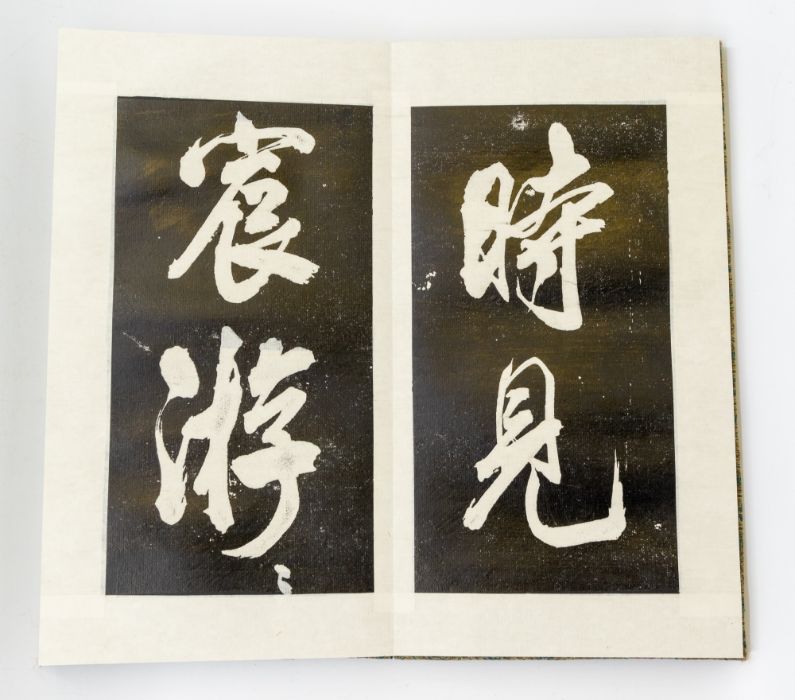 時見
宸游